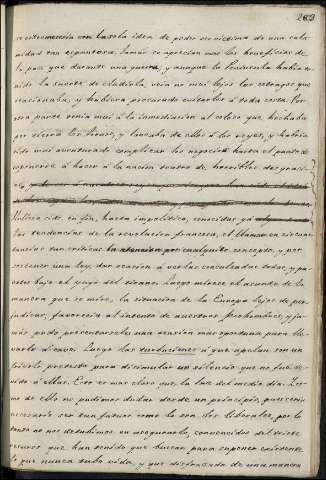 269
se estremecería con la sola idea de poder ser víctima de una cala-
midad tan espantosa. Jamás se aprecian mas los beneficios de
la paz que durante una guerra, y aunque la Península había te-
nido la suerte de eludirla, veía no mui lejos los estragos que
ocasionaba, y hubiera procurado evitarlos á toda costa. Por
otra parte venía mui á la inmediación el coloso que hechaba
por tierra los tronos, y lanzaba de ellos á los reyes, y habría
sido mui aventurado complicar los negocios hasta el punto de
esponerse á hacer á la nación teatro de horribles desgracias
Hubiera sido, en fin, harto impolítico, conocidas yá
las tendencias de la revolución francesa, el llamar en circuns-
tancias tan críticas la atención por cualquier concepto, y por
consiente una ley, dar ocasión á ver las conculcadas todas, y pues-
tos bajo el yugo del tirano. Luego mírese el asunto de la
manera que se mire, la situación de la Europa lejos de per-
judicar, favorecía al intento de nuestros prohombres, y ja-
más pudo presentarseles una ocasión mas oportuna para lle-
varlo á cabo. Luego las turbaciones á que apelan son un
fútil pretesto para disimular un silencio que no fué de-
vido á ellas. Esto es mas claro que la luz del medio día. Leo-
no de ello no pudimos dudar desde un principio, pues sería
necesario ser tan fatuos como lo son los liberales, por lo
tanto no nos detubimos en asegurarlo, convencidos del triste
recurso que han tenido que buscar para suponer existente
lo que nunca tubo vida, y que disfrazado de una manera